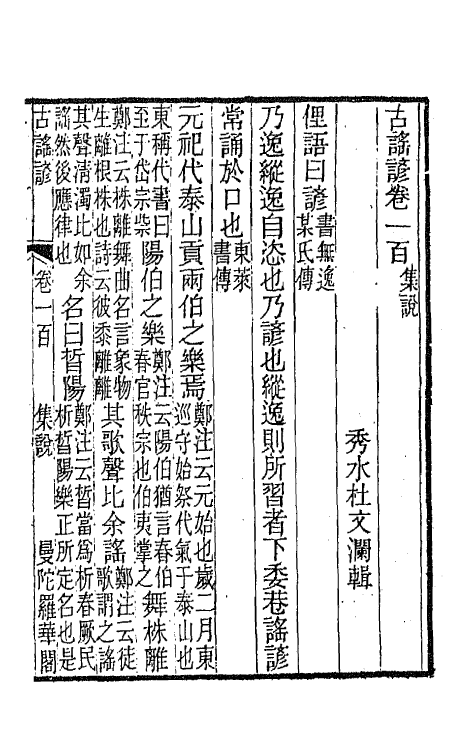 古謠諺卷一百 集說
秀水杜文瀾輯
俚語曰諺 書無逸某氏傳
乃逸縱逸自恣也乃諺也縱逸則所習者下委巷謠諺
常誦於口也 東萊書傳
元祀代泰山貢兩伯之樂焉 鄭注云元始也歲二月東巡守始祭代氣于泰山也
東稱代書曰至于岱宗柴 陽伯之樂 鄭注云陽伯猶言春伯春官秩宗也伯夷掌之 舞株離
鄭注云株離舞曲名言象物生離根株也詩云彼黍離離 其歌聲比余謠 鄭注云徒歌謂之謠
其聲清濁比如余謠然後應律也 名曰晳陽 鄭注云晳當爲析春厥民析晳陽樂正所定名也是
古謠諺 卷一百 集說 曼陀羅華閣